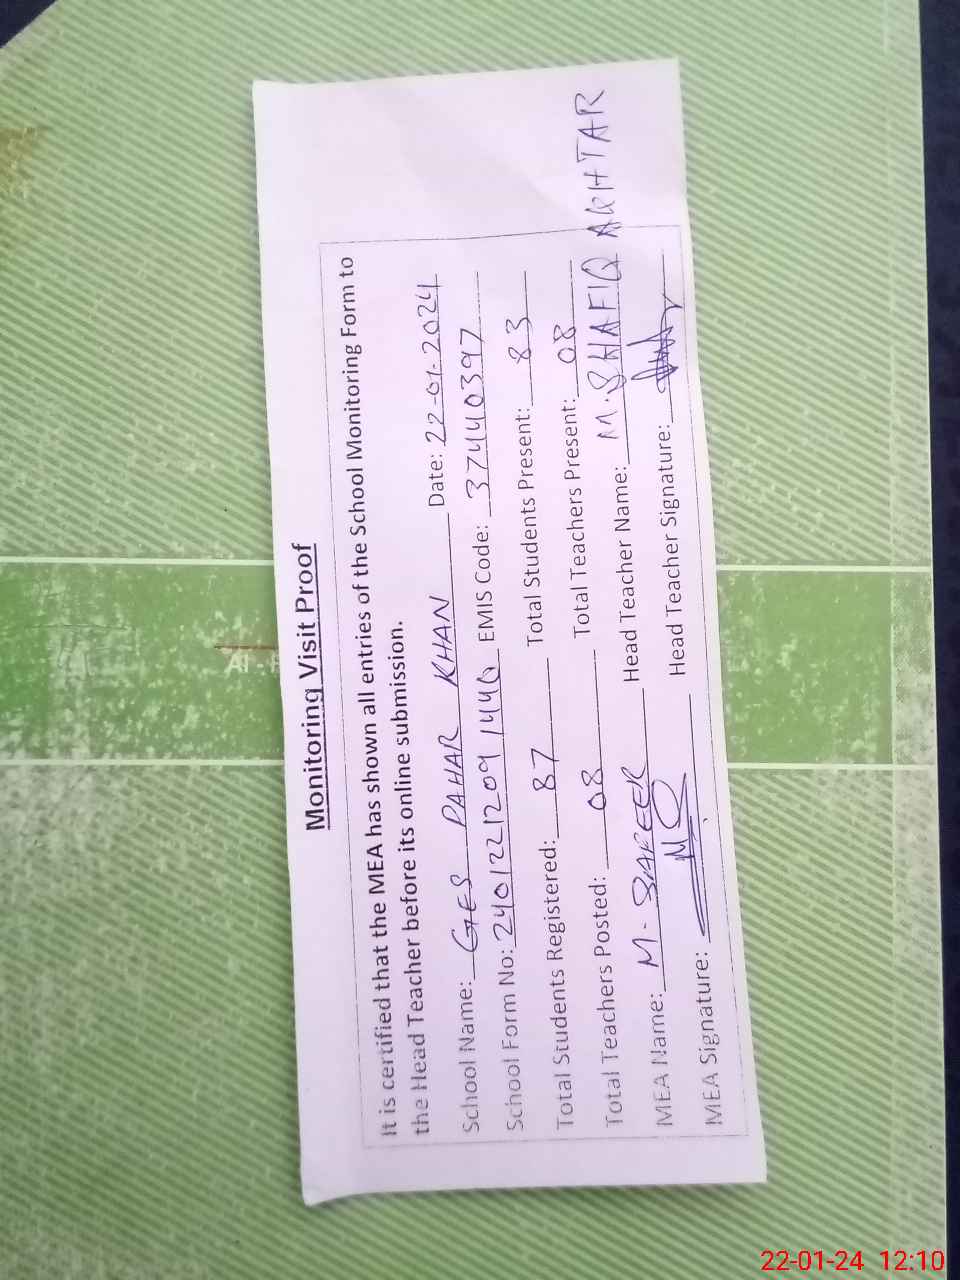 Monitoring Visit Proof
It is certified that the MEA has shown all entries of the School Monitoring Form to
the Head Teacher before its online submission.
School Name: GES PAHAR KHAN Date: 22-01-2024
School Form No: 2401221209144 EMIS Code: 37440397
Total Students Registered: 87 Total Students Present: 83
Total Teachers Posted: 08 Total Teachers Present: 08
MEA Name: M. Head Teacher Name: M. SHAFIQ AKHTAR
MEA Signature: Head Teacher Signature:
22-01-24 12:10